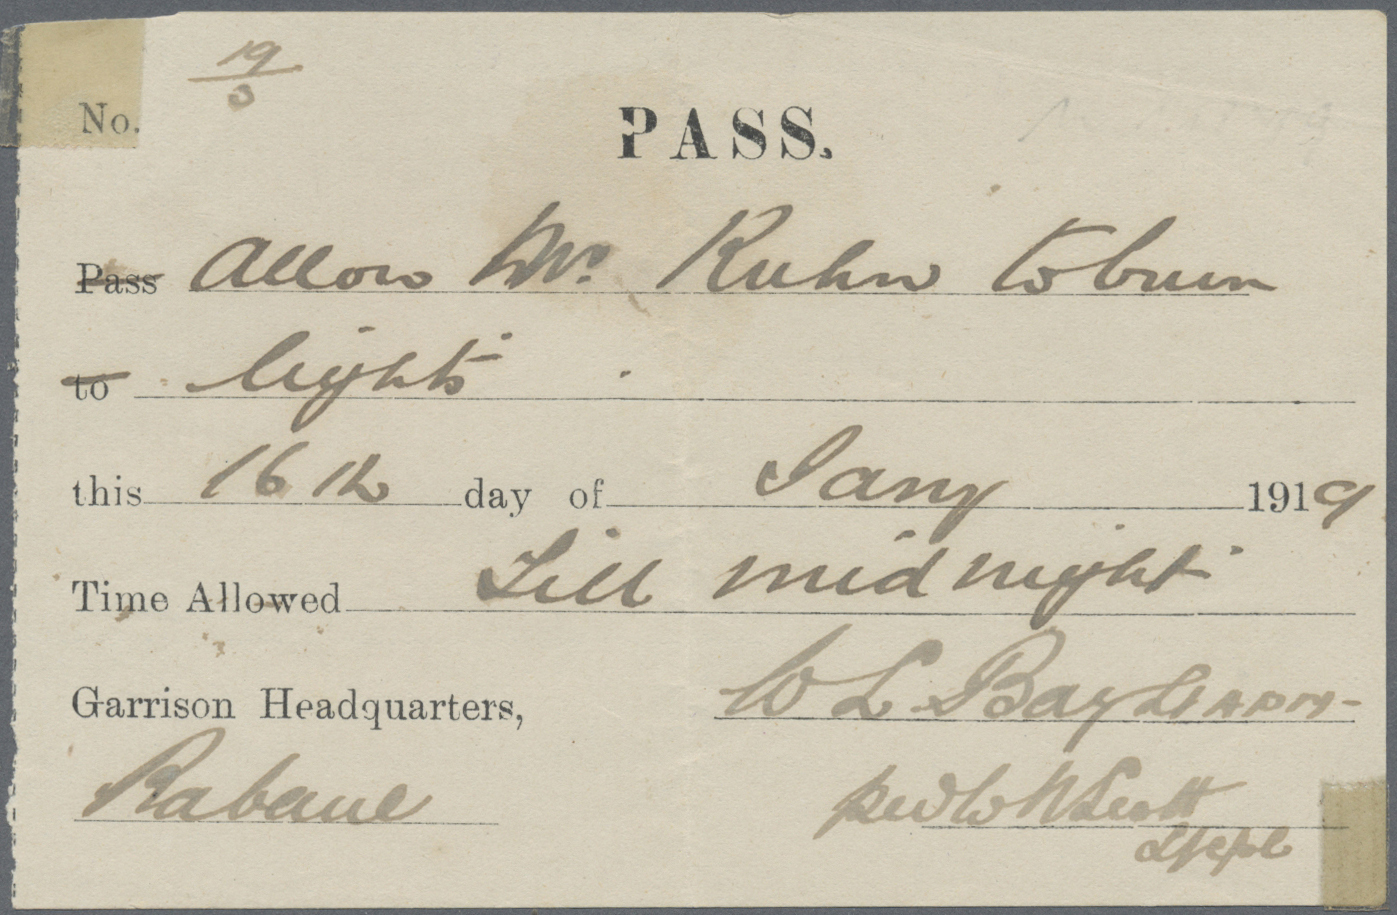 19/0
No.
PASS.
Pass Allow Mr. Kuhn to burn
to lights
this 16th day of Jany 1919
Time Allowed Till midnight
Garrison Headquarters, W L Bay Lt APM
Rabaul
per W Scott